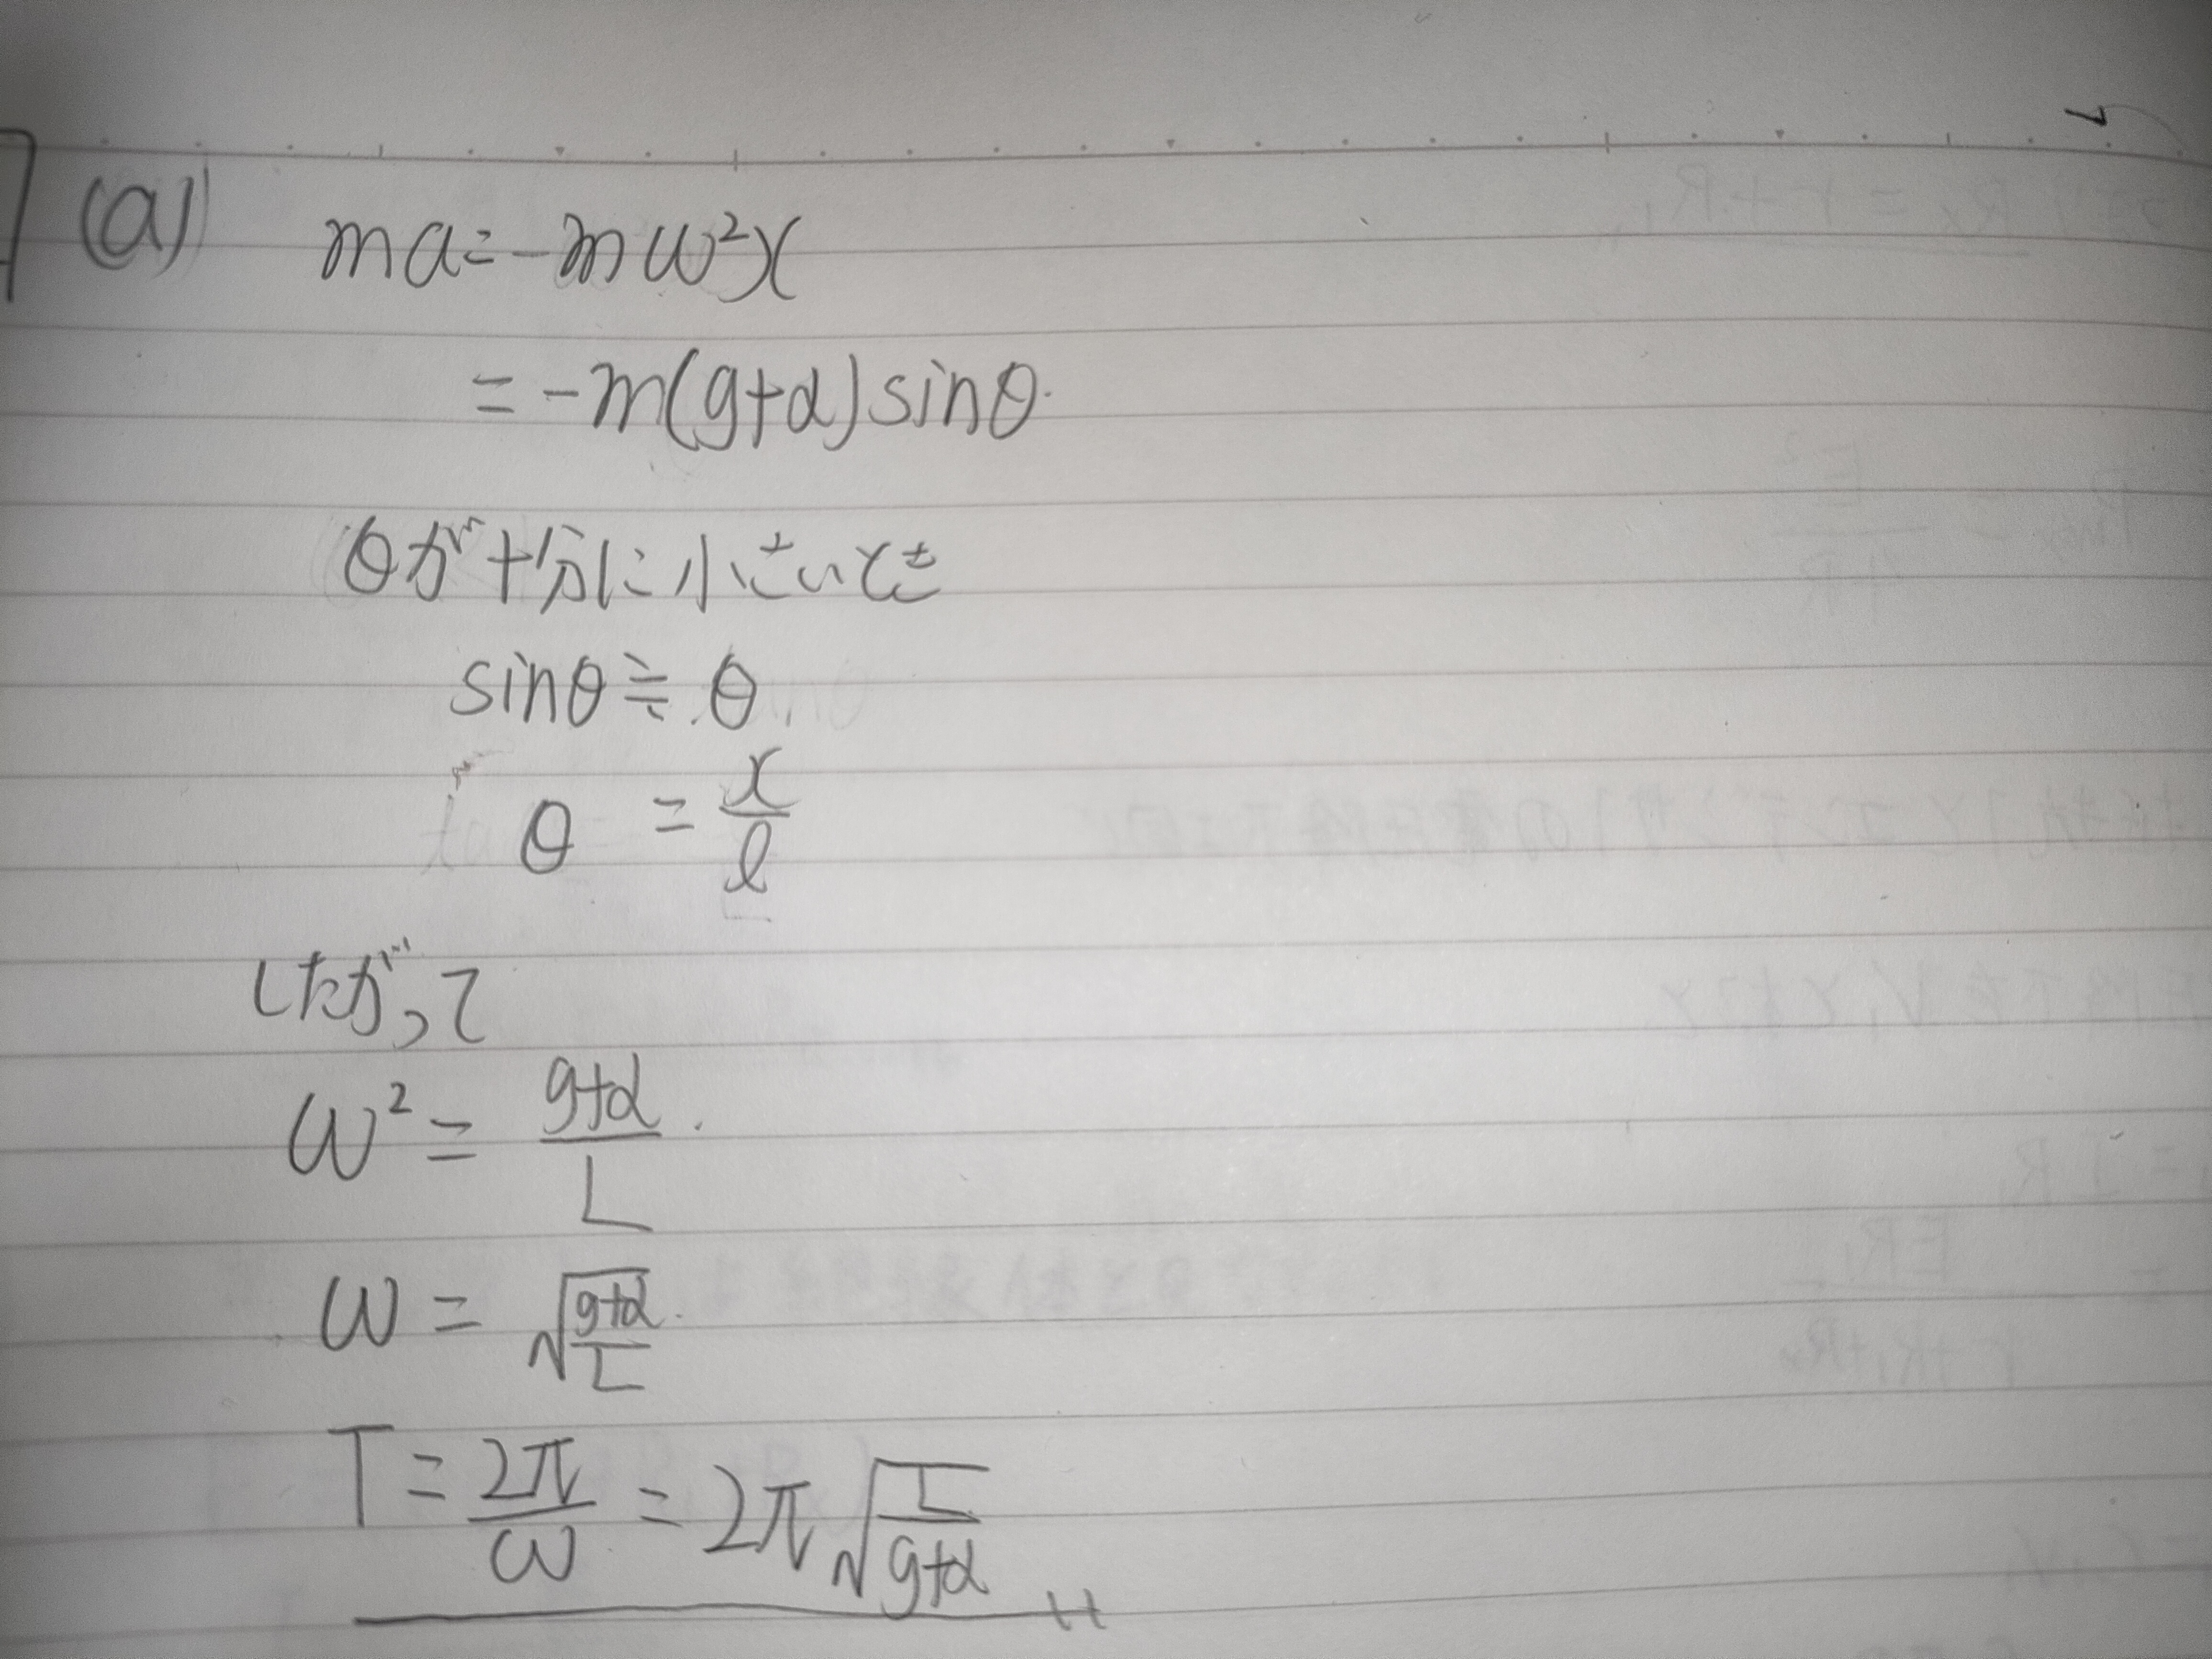 (a) ma = -mω²x
= -m(g+α)sinθ
θが十分に小さいとき
sinθ≒θ
θ = x/ℓ
したがって
ω² = (g+α)/L
ω = √((g+α)/L)
T = 2π/ω = 2π√(L/(g+α))